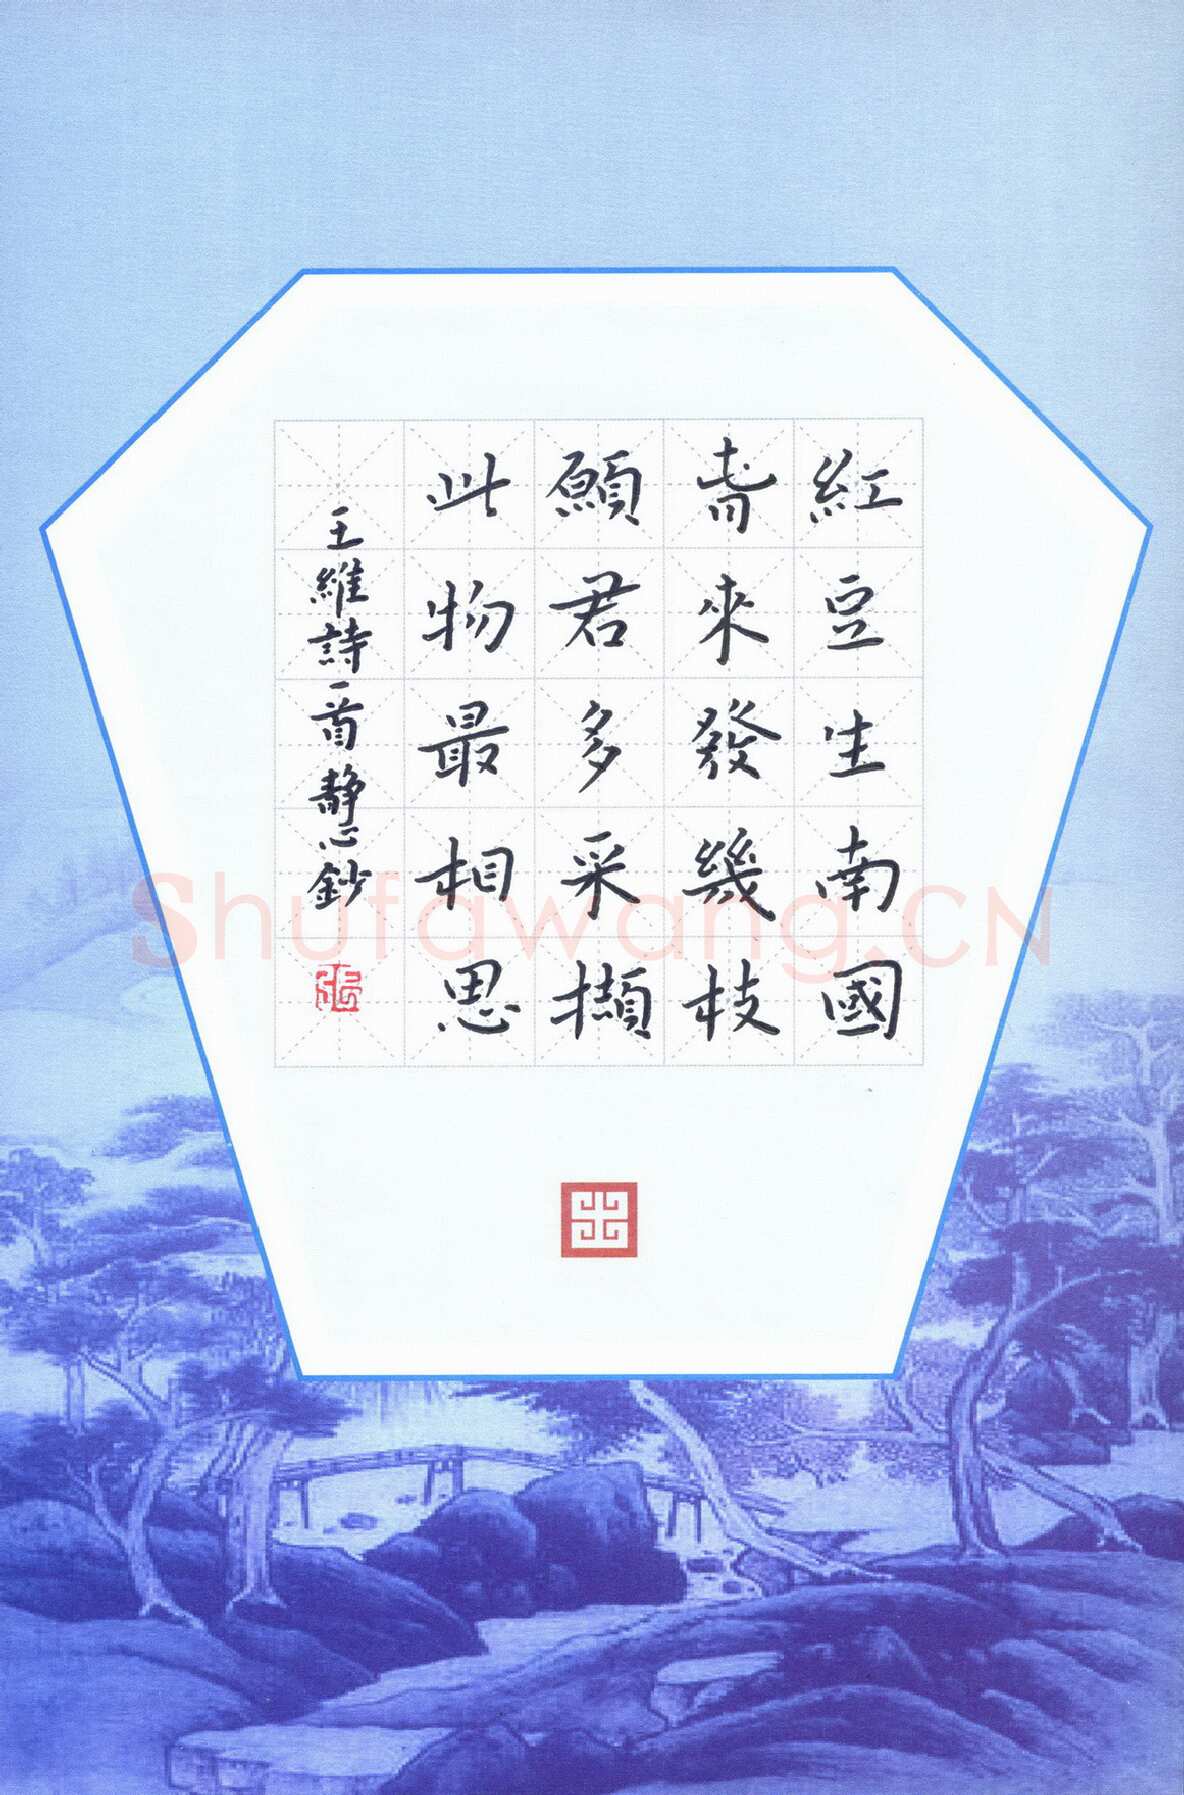 紅豆生南國
旾來發幾枝
願君多采擷
此物最相思
王維詩一首静心鈔
Shufawang.CN